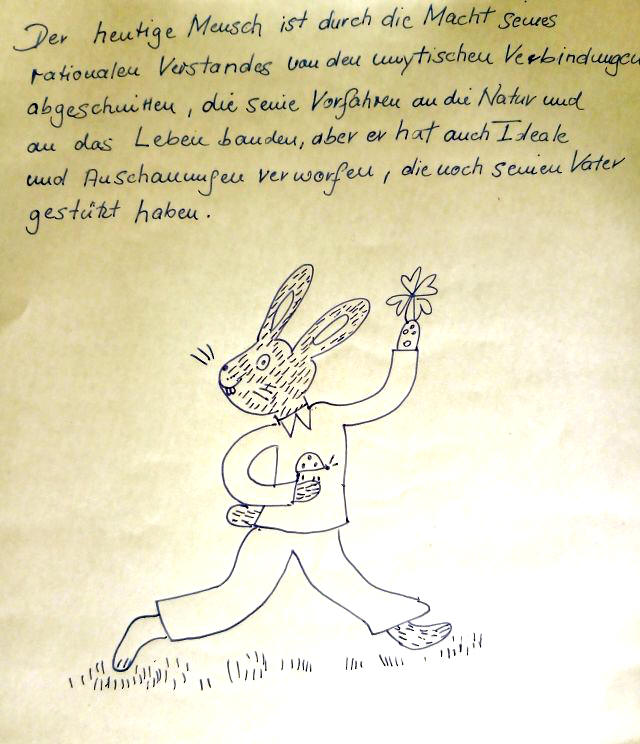 Der heutige Mensch ist durch die Macht seines
rationalen Verstandes von den mytischen Verbindungen
abgeschnitten, die seine Vorfahren an die Natur und
an das Leben banden, aber er hat auch Ideale
und Anschauungen verworfen, die noch seinen Vater
gestützt haben.